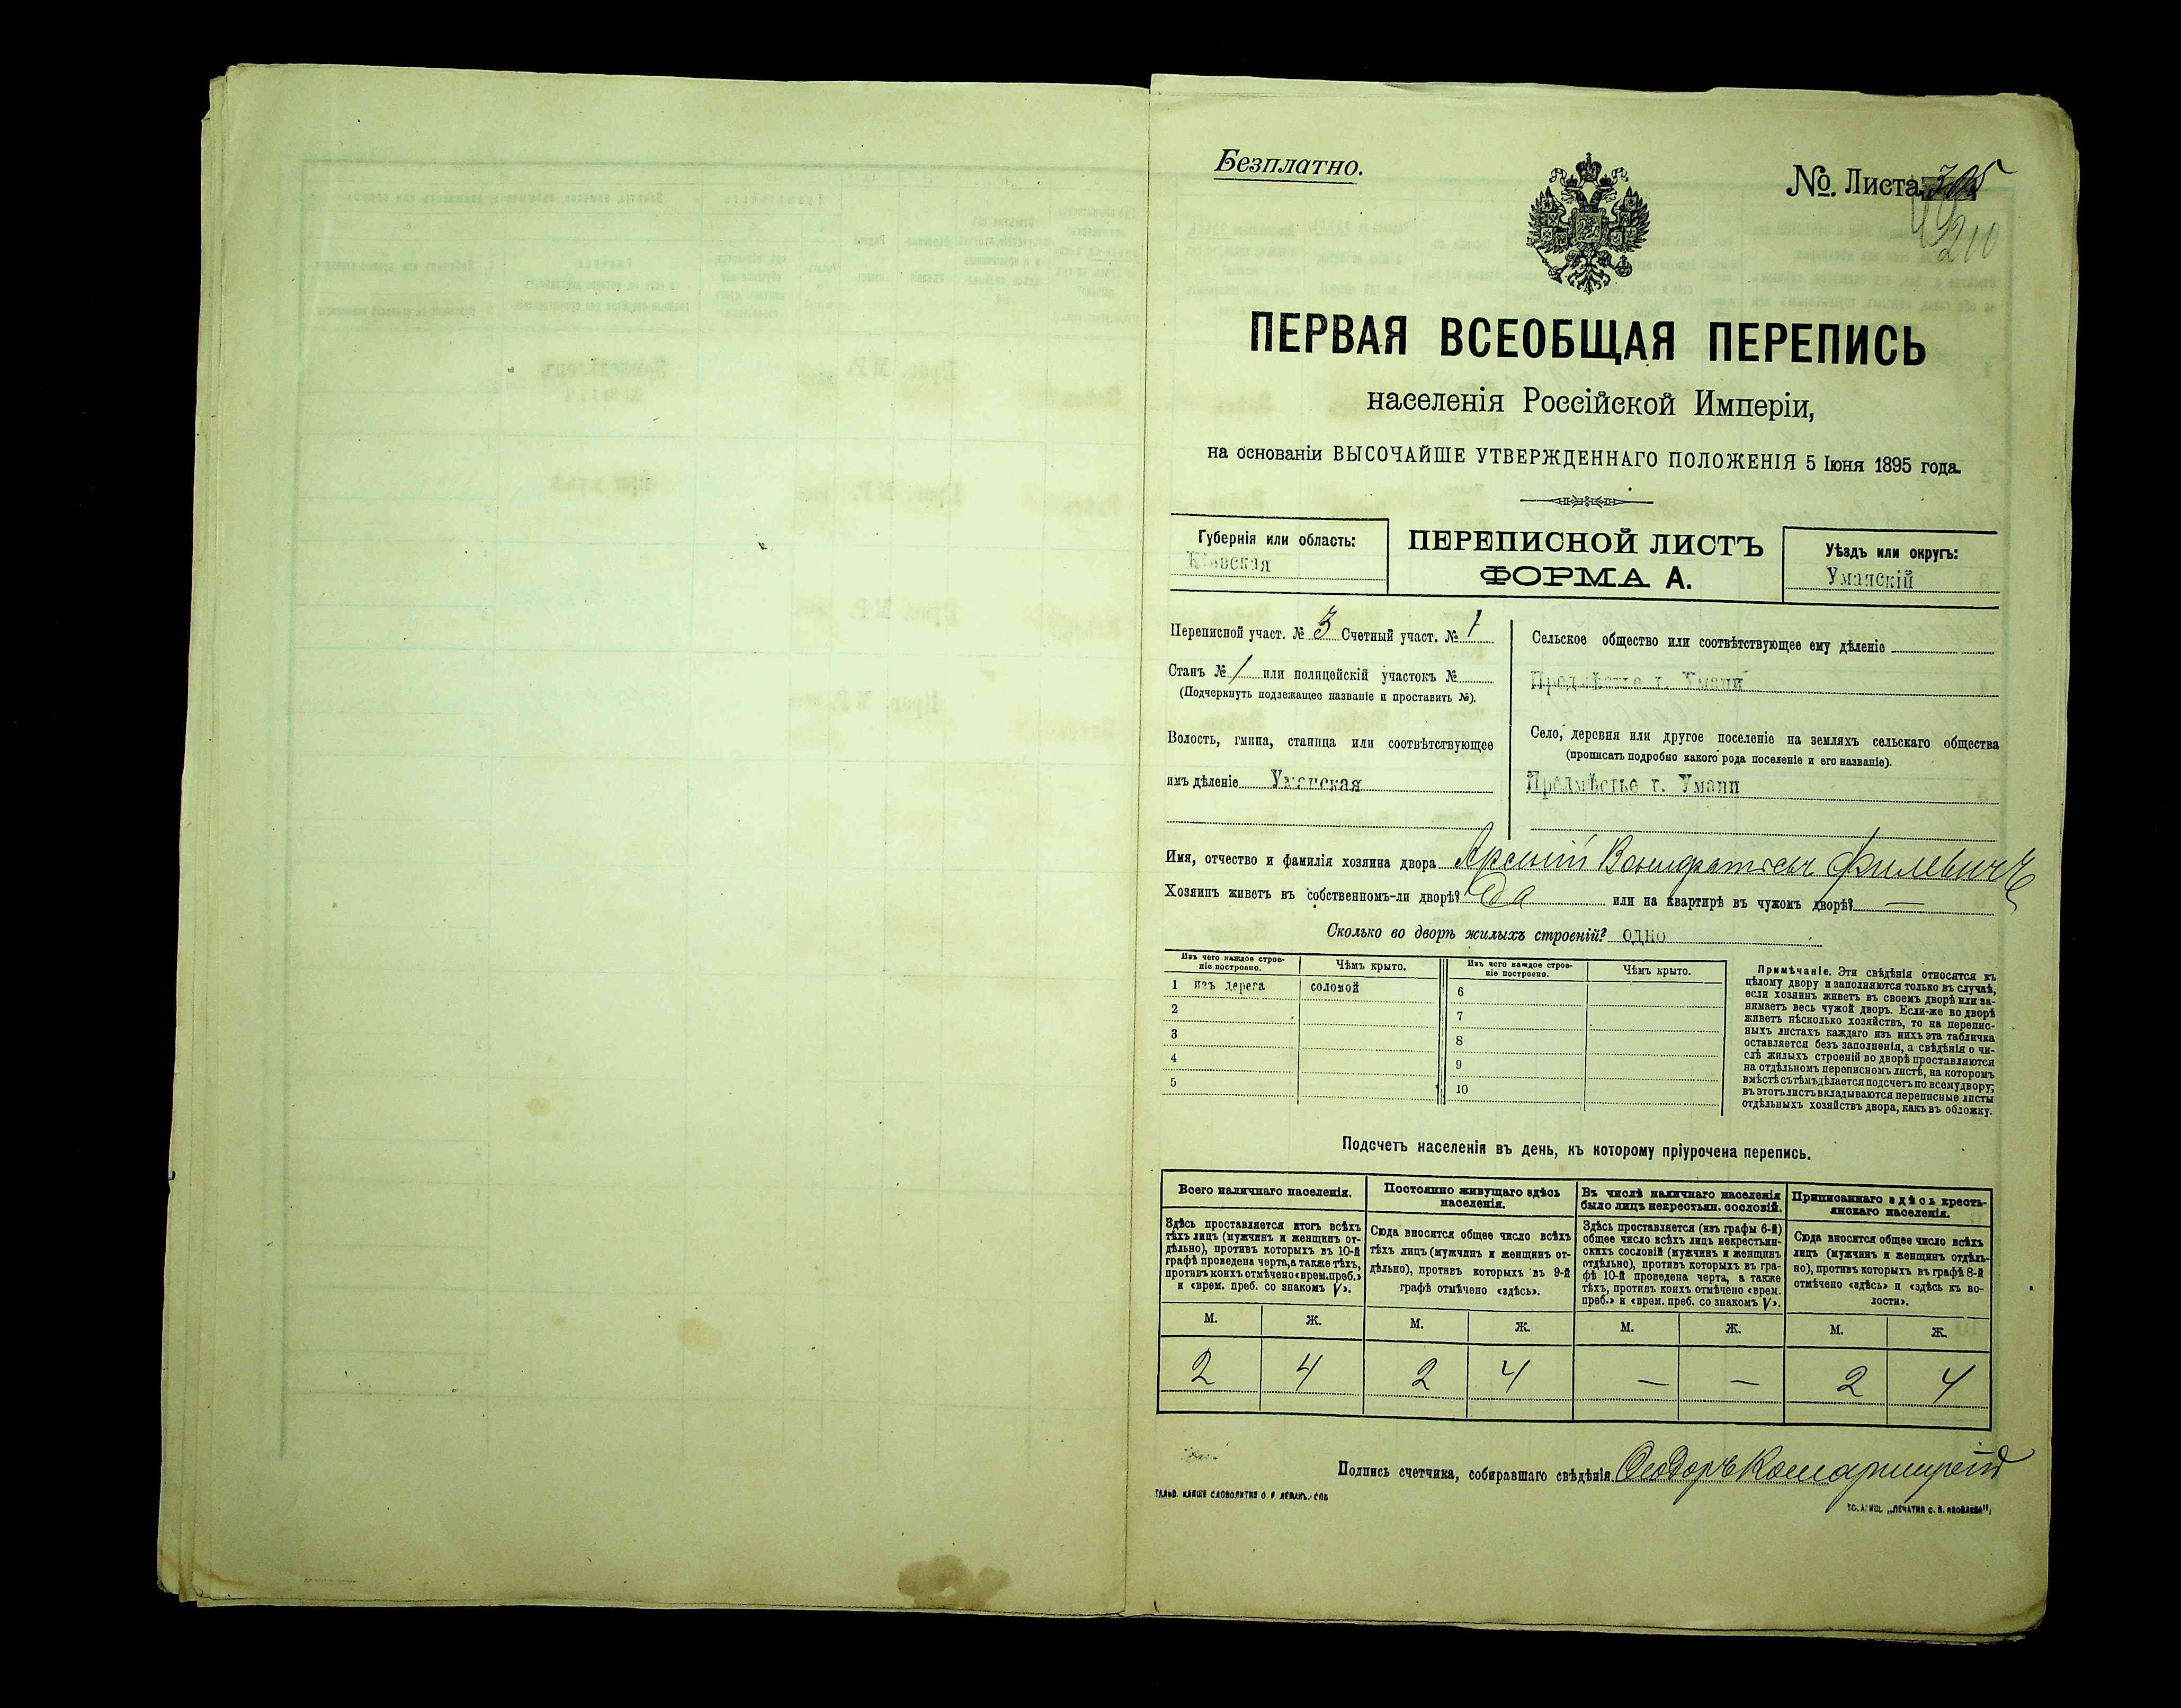 Безплатно.
№. Листа 305
210
ПЕРВАЯ ВСЕОБЩАЯ ПЕРЕПИСЬ
населенія Россійской Имперіи,
на основаніи ВЫСОЧАЙШЕ УТВЕРЖДЕННАГО ПОЛОЖЕНІЯ 5 Іюня 1895 года.
Губернія или область:
Кіевская
ПЕРЕПИСНОЙ ЛИСТЪ
ФОРМА А.
Уѣздъ или округъ:
Уманскій
Переписной участ. № 3 Счетный участ. № 1
Станъ № 1 или полицейскій участокъ №
(Подчеркнуть подлежащее названіе и проставить №).
Волость, гмина, станица или соотвѣтствующее
имъ дѣленіе Уманская
Сельское общество или соотвѣтствующее ему дѣленіе
Предмѣстье г. Умани
Село, деревня или другое поселеніе на земляхъ сельскаго общества
(прописать подробно какого рода поселеніе и его названіе).
Предмѣстье г. Умани
Имя, отчество и фамилія хозяина двора Арсеній Вонифатіевъ Филевичъ
Хозяинъ живетъ въ собственномъ-ли дворѣ? Да или на квартирѣ въ чужомъ дворѣ? —
Сколько во дворѣ жилыхъ строеній? одно
Изъ чего каждое строе-
ніе построено.
Чѣмъ крыто.
Изъ чего каждое строе-
ніе построено.
Чѣмъ крыто.
1 изъ дерева соломой 6
2 7
3 8
4 9
5 10
Примѣчаніе. Эти свѣдѣнія относятся къ
цѣлому двору и заполняются только въ случаѣ,
если хозяинъ живетъ въ своемъ дворѣ или за-
нимаетъ весь чужой дворъ. Если-же во дворѣ
живетъ нѣсколько хозяйствъ, то на перепис-
ныхъ листахъ каждаго изъ нихъ эта табличка
оставляется безъ заполненія, а свѣдѣнія о чи-
слѣ жилыхъ строеній во дворѣ проставляются
на отдѣльномъ переписномъ листѣ, на которомъ
вмѣстѣ съ тѣмъ дѣлается подсчетъ по всему двору;
въ этотъ листъ вкладываются переписные листы
отдѣльныхъ хозяйствъ двора, какъ въ обложку.
Подсчетъ населенія въ день, къ которому пріурочена перепись.
Всего наличнаго населенія.
Здѣсь проставляется итогъ всѣхъ
тѣхъ лицъ (мужчинъ и женщинъ от-
дѣльно), противъ которыхъ въ 10-й
графѣ проведена черта, а также тѣхъ,
противъ коихъ отмѣчено «врем. преб.»
и «врем. преб. со знакомъ V».
Постоянно живущаго здѣсь
населенія.
Сюда вносится общее число всѣхъ
тѣхъ лицъ (мужчинъ и женщинъ от-
дѣльно), противъ которыхъ въ 9-й
графѣ отмѣчено «здѣсь».
Въ числѣ наличнаго населенія
было лицъ некрестьян. сословій.
Здѣсь проставляется (изъ графы 6-й)
общее число всѣхъ лицъ некрестьян-
скихъ сословій (мужчинъ и женщинъ
отдѣльно), противъ которыхъ въ гра-
фѣ 10-й проведена черта, а также
тѣхъ, противъ коихъ отмѣчено «врем.
преб.» и «врем. преб. со знакомъ V».
Приписаннаго здѣсь кресть-
янскаго населенія.
Сюда вносится общее число всѣхъ
лицъ (мужчинъ и женщинъ отдѣль-
но), противъ которыхъ въ графѣ 8-й
отмѣчено «здѣсь» и «здѣсь къ во-
лости».
М. Ж. М. Ж. М. Ж. М. Ж.
2 4 2 4 — — 2 4
Подпись счетчика, собиравшаго свѣдѣнія Ѳеодоръ Комарницкій